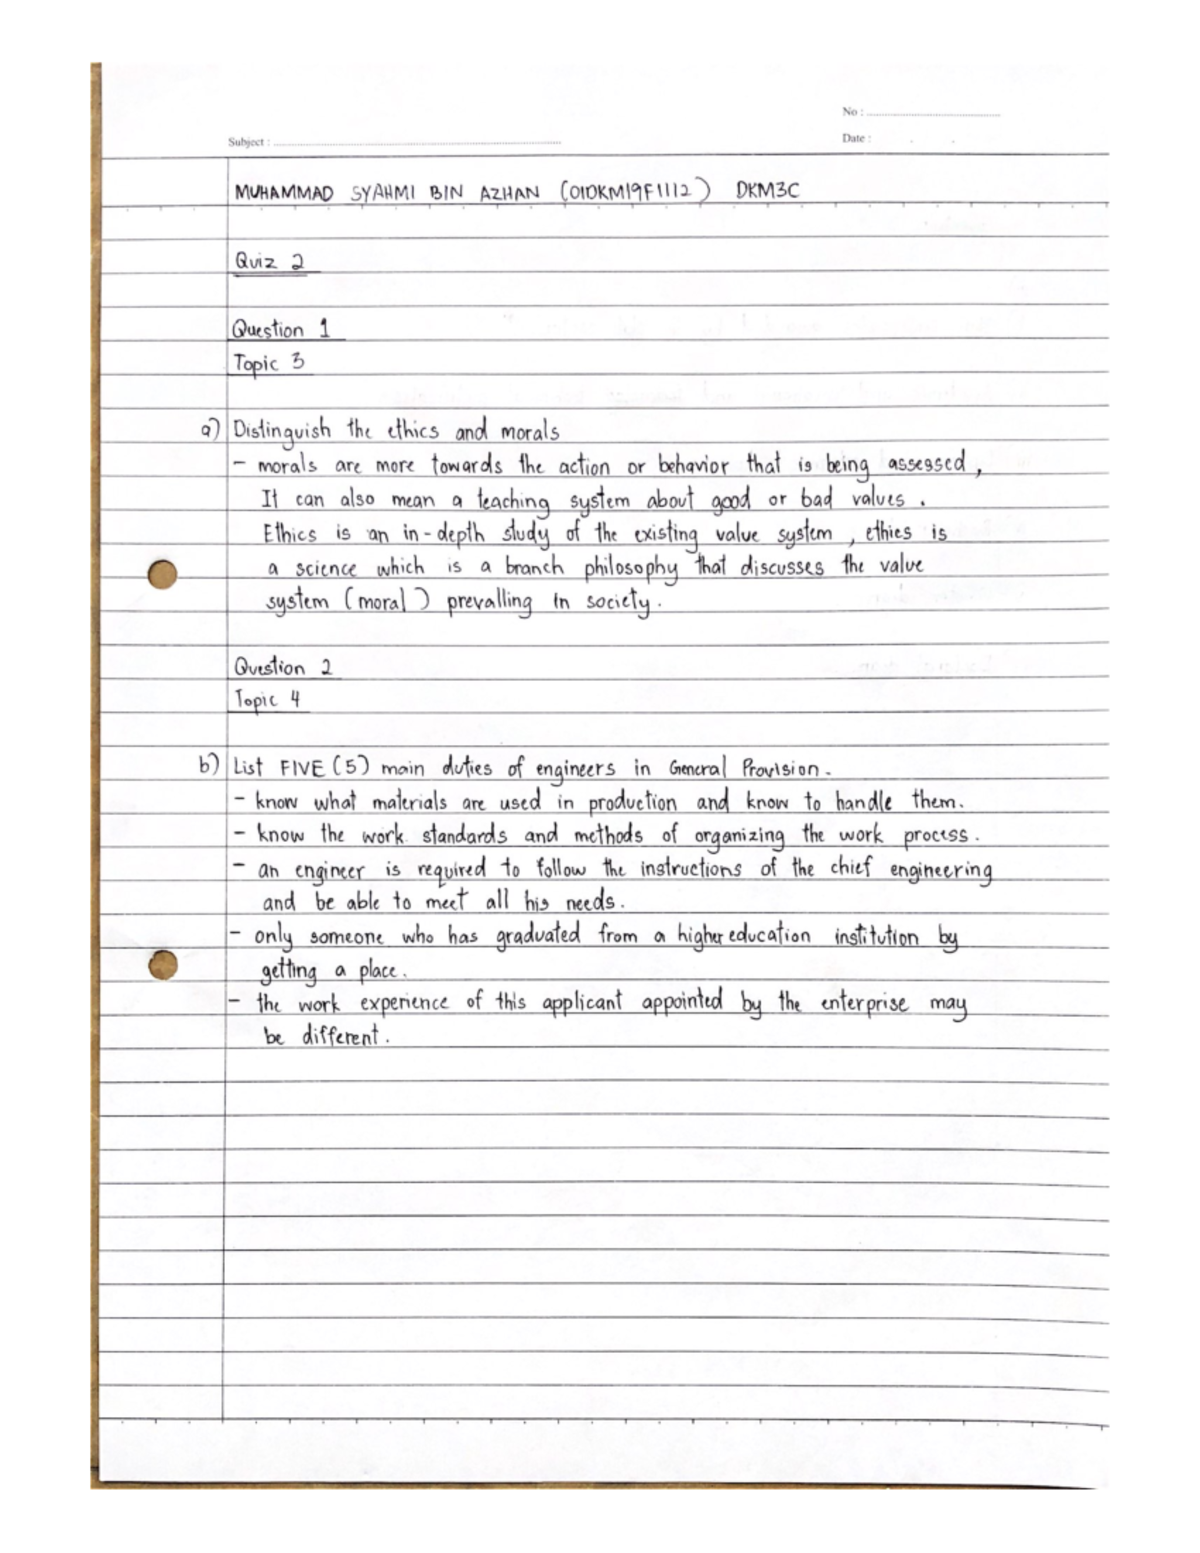 No :
Subject :
Date :
MUHAMMAD SYAHMI BIN AZHAN (01DKM19F1112) DKM3C
Quiz 2
Question 1
Topic 3
a) Distinguish the ethics and morals
- morals are more towards the action or behavior that is being assessed,
It can also mean a teaching system about good or bad values.
Ethics is an in-depth study of the existing value system, ethics is
a science which is a branch philosophy that discusses the value
system (moral) prevalling in society.
Question 2
Topic 4
b) List FIVE (5) main duties of engineers in General Provision.
- know what materials are used in production and know to handle them.
- know the work standards and methods of organizing the work process.
- an engineer is required to follow the instructions of the chief engineering
and be able to meet all his needs.
- only someone who has graduated from a higher education institution by
getting a place.
- the work experience of this applicant appointed by the enterprise may
be different.